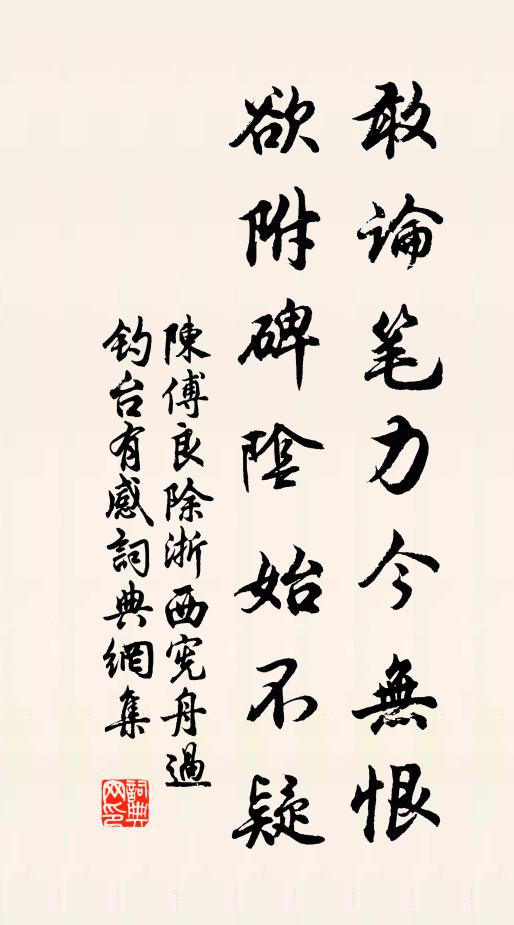 敢論笔力今無恨
欲附碑陰始不疑
陳傅良除浙西宪舟過
钓台有感詞典網集
詞典
网印